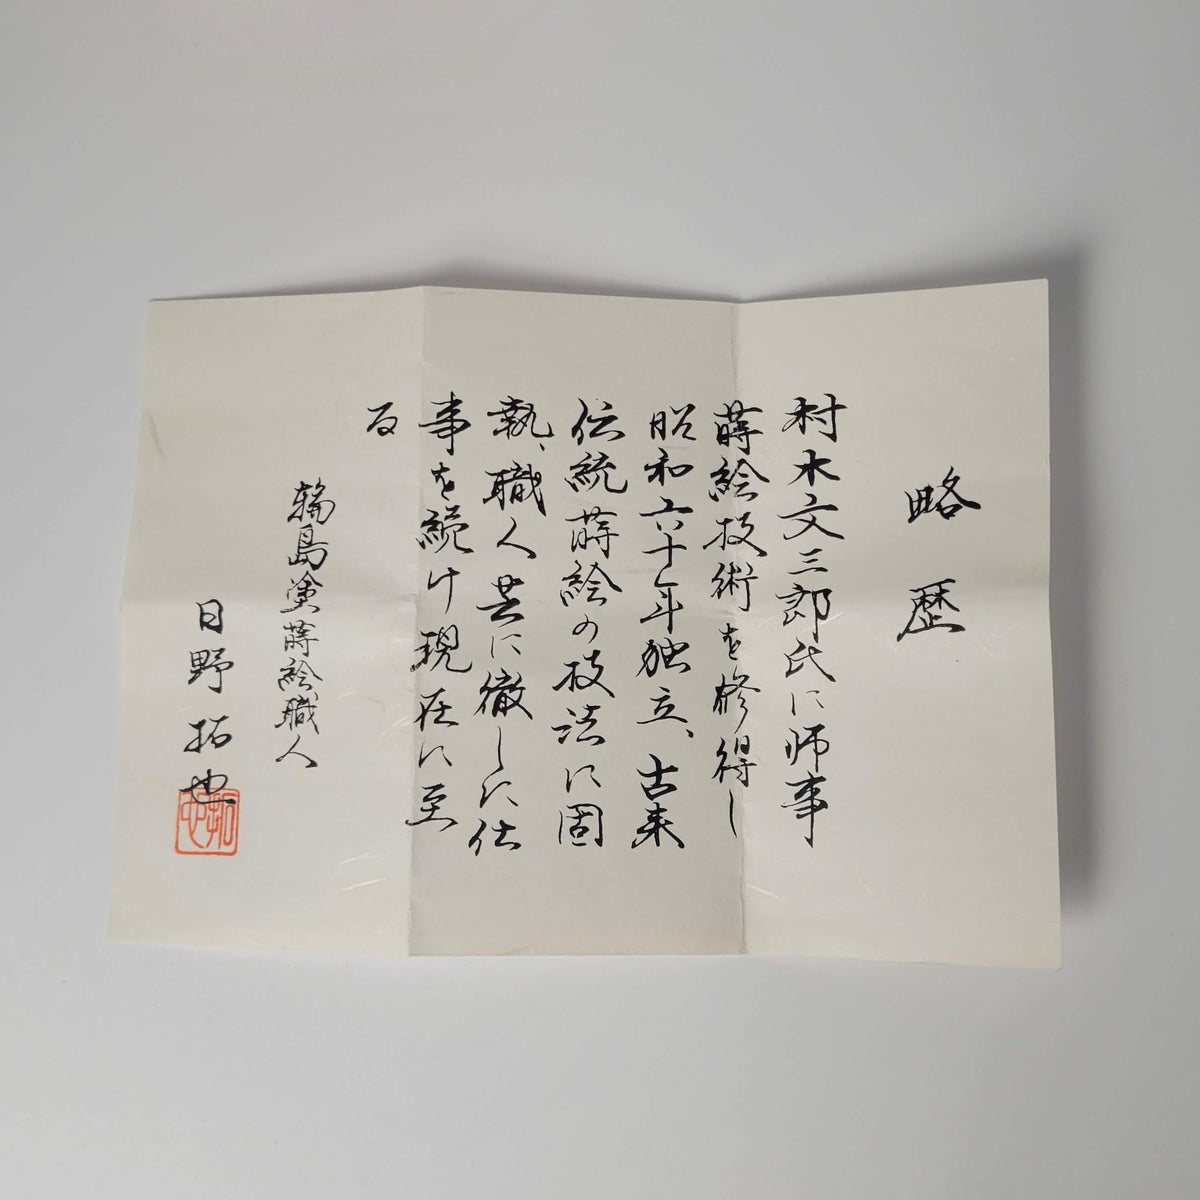 略歴
村木文三郎氏に師事
蒔絵技術を修得し
昭和六十年独立、古来
伝統蒔絵の技法に固
執、職人芸に徹しに仕
事を続け現在に至
る
輪島塗蒔絵職人
日野拓也
拓也